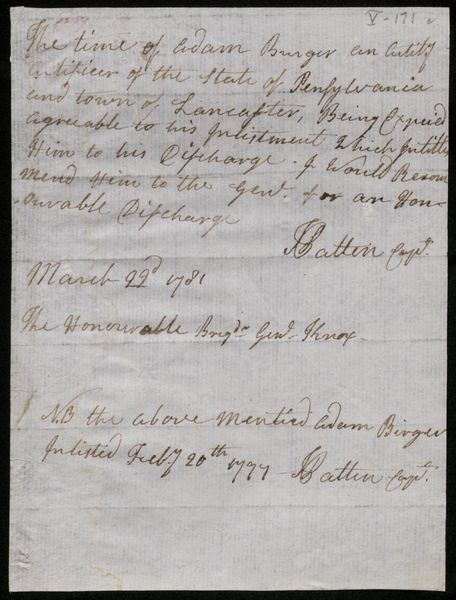 V-171
The time of Adam Burger an Artif
Artificer of the State of Pensylvania
and town of Lancaster, Being Expired
agreeable to his Inlistment Which Intitles
Him to his Discharge. I Would Recom
mend Him to the Genl. for an Hon-
ourable Discharge
Patten Capt.
March 22d 1781
The Honourable Brigdr Genl. Knox-
NB the above Mentied Adam Birger
Inlisted Feby 20th 1777 - Patten Capt.